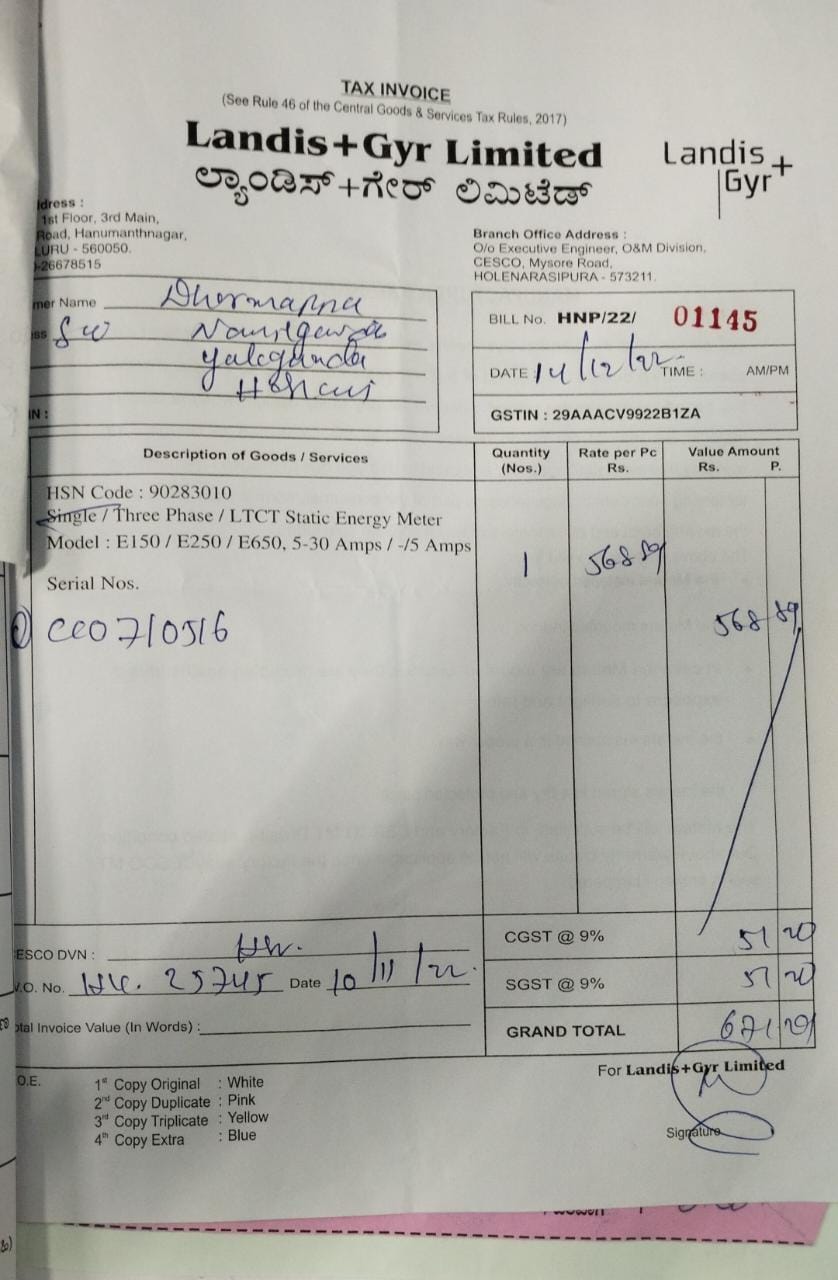 TAX INVOICE
(See Rule 46 of the Central Goods & Services Tax Rules, 2017)
Landis+Gyr Limited
ಲ್ಯಾಂಡಿಸ್+ಗೇರ್ ಲಿಮಿಟೆಡ್
Landis+
Gyr
dress :
1st Floor, 3rd Main,
Road, Hanumanthnagar,
LURU - 560050.
-26678515
Branch Office Address :
O/o Executive Engineer, O&M Division,
CESCO, Mysore Road,
HOLENARASIPURA - 573211.
mer Name Dhermappa
ss S/o
Yalegunda
IN :
BILL No. HNP/22/ 01145
DATE 14/12/22 TIME : AM/PM
GSTIN : 29AAACV9922B1ZA
Description of Goods / Services Quantity (Nos.) Rate per Pc Rs. Value Amount Rs. P.
HSN Code : 90283010
Single / Three Phase / LTCT Static Energy Meter
Model : E150 / E250 / E650, 5-30 Amps / -/5 Amps 1 568 89
Serial Nos.
1) CC0710516 568 89
CGST @ 9% 51 20
ESCO DVN :
SGST @ 9% 51 20
.O. No. 25745 Date 10/11/22.
GRAND TOTAL 671 29
otal Invoice Value (In Words) :
.O.E.
For Landis+Gyr Limited
1st Copy Original : White
2nd Copy Duplicate : Pink
3rd Copy Triplicate : Yellow
4th Copy Extra : Blue
Signature